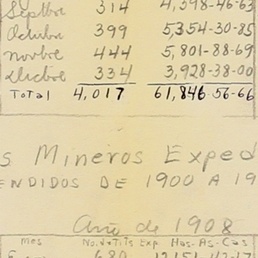 Septbre 314 4,598-46-63
Octubre 399 5,354-30-85
novbre 444 5,801-88-69
Dicbre 334 3,928-38-00
Total 4,017 61,846-56-66
s Mineros Exped
ENDIDOS DE 1900 A 19
Año de 1908
Mes No. de Tits Exp Has-As-Cas
680